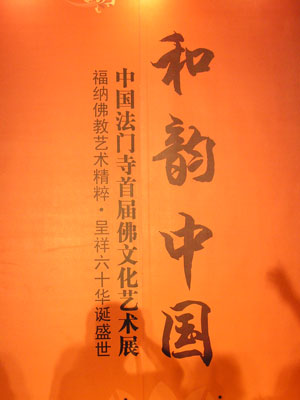 和韵中国
中国法门寺首届佛文化艺术展
福纳佛教艺术精粹·呈祥六十华诞盛世